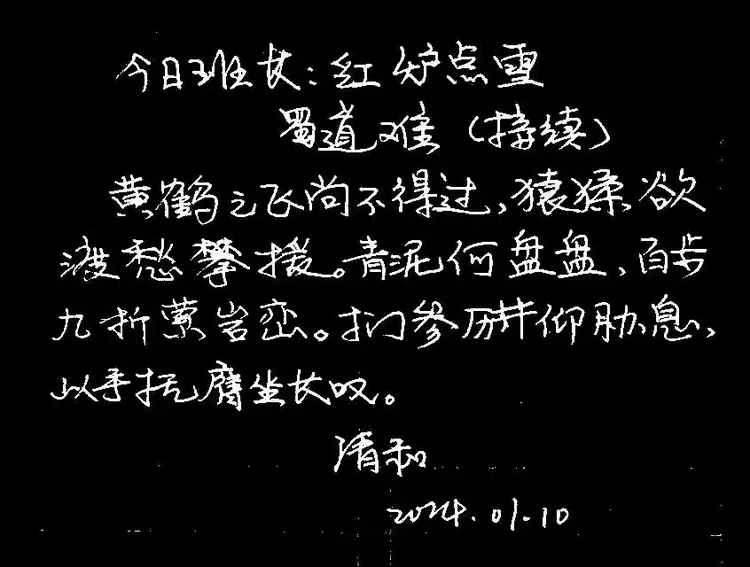 今日班长：红炉点雪
蜀道难（接续）
黄鹤之飞尚不得过，猿猱欲
渡愁攀援。青泥何盘盘，百步
九折萦岩峦。扪参历井仰胁息，
以手抚膺坐长叹。
清和
2024.01.10